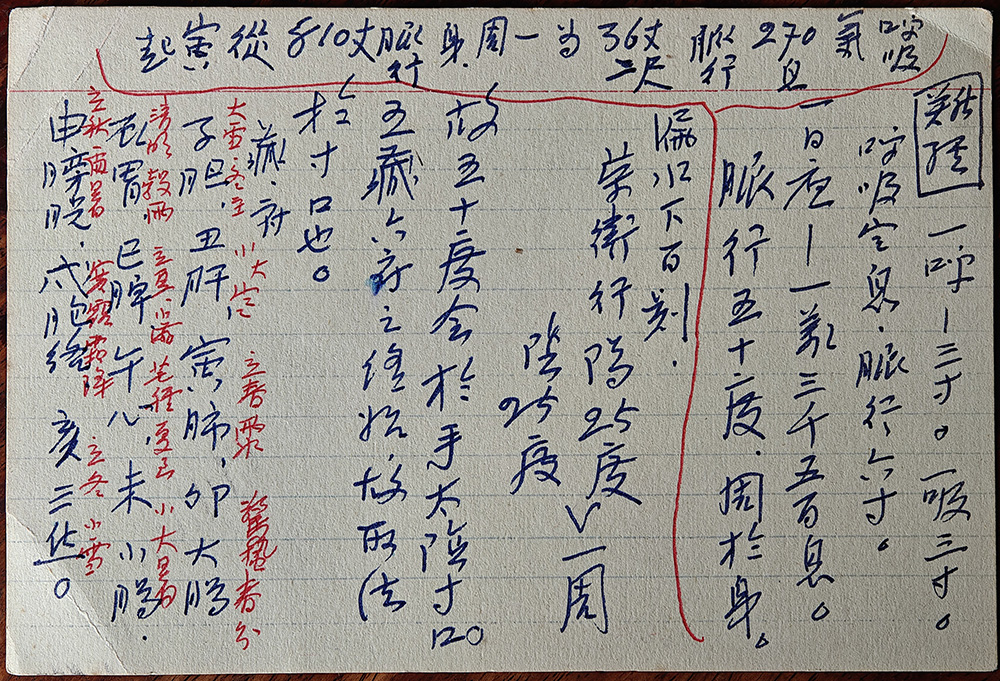 呼吸氣 270息 脈行36丈二尺 当一周身,脈行810丈 從寅起
難經
一呼—三寸。一吸三寸。
呼吸定息.脈行六寸。
一日夜—一萬三千五百息。
脈行五十度.周於身。
漏水下百刻.
榮衛行陽25度 ∨一周
陰25度
故五十度会於手太陰寸口。
五藏六府之終始,故取法
於寸口也。
藏.府
大雪冬至 小大寒 立春雨水 驚蟄春分
子胆,丑肝,寅肺,卯大腸
清明穀雨 立夏小滿 芒種夏至 小大暑
辰胃,巳脾,午心,未小腸.
立秋 寒露霜降 立冬小雪
申膀胱.戌胞絡 亥三焦。